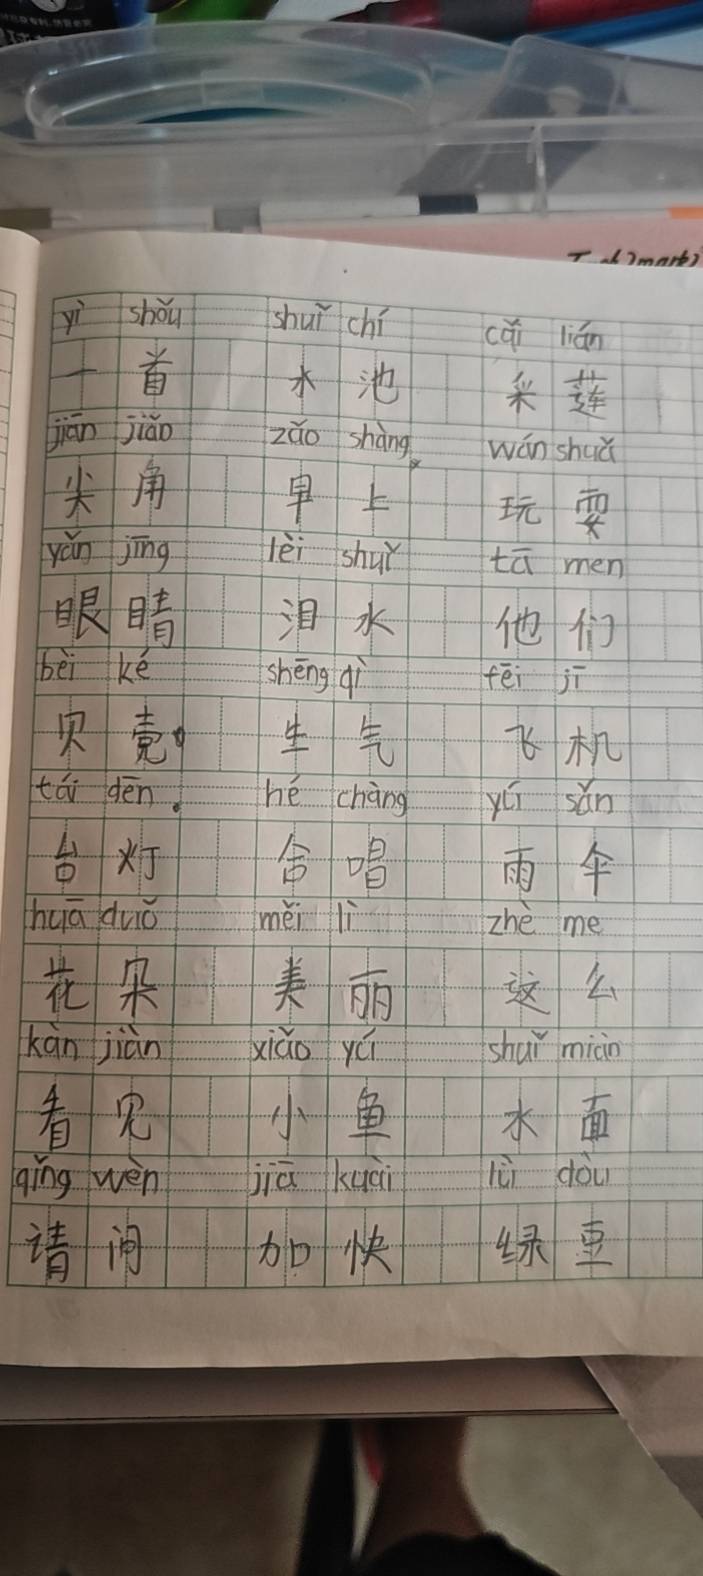 yì shǒu shuǐ chí cǎi lián
一首 水池 采莲
jiān jiǎo zǎo shàng wán shuǎ
尖角 早上 玩耍
yǎn jīng lèi shuǐ tā men
眼睛 泪水 他们
bèi ké shēng qì fēi jī
贝壳 生气 飞机
tái dēn hé chàng yǔ sǎn
台灯 合唱 雨伞
huā duǒ měi lì zhè me
花朵 美丽 这么
kàn jiàn xiǎo yú shuǐ miàn
看见 小鱼 水面
qǐng wèn jiā kuài lǜ dòu
请问 加快 绿豆